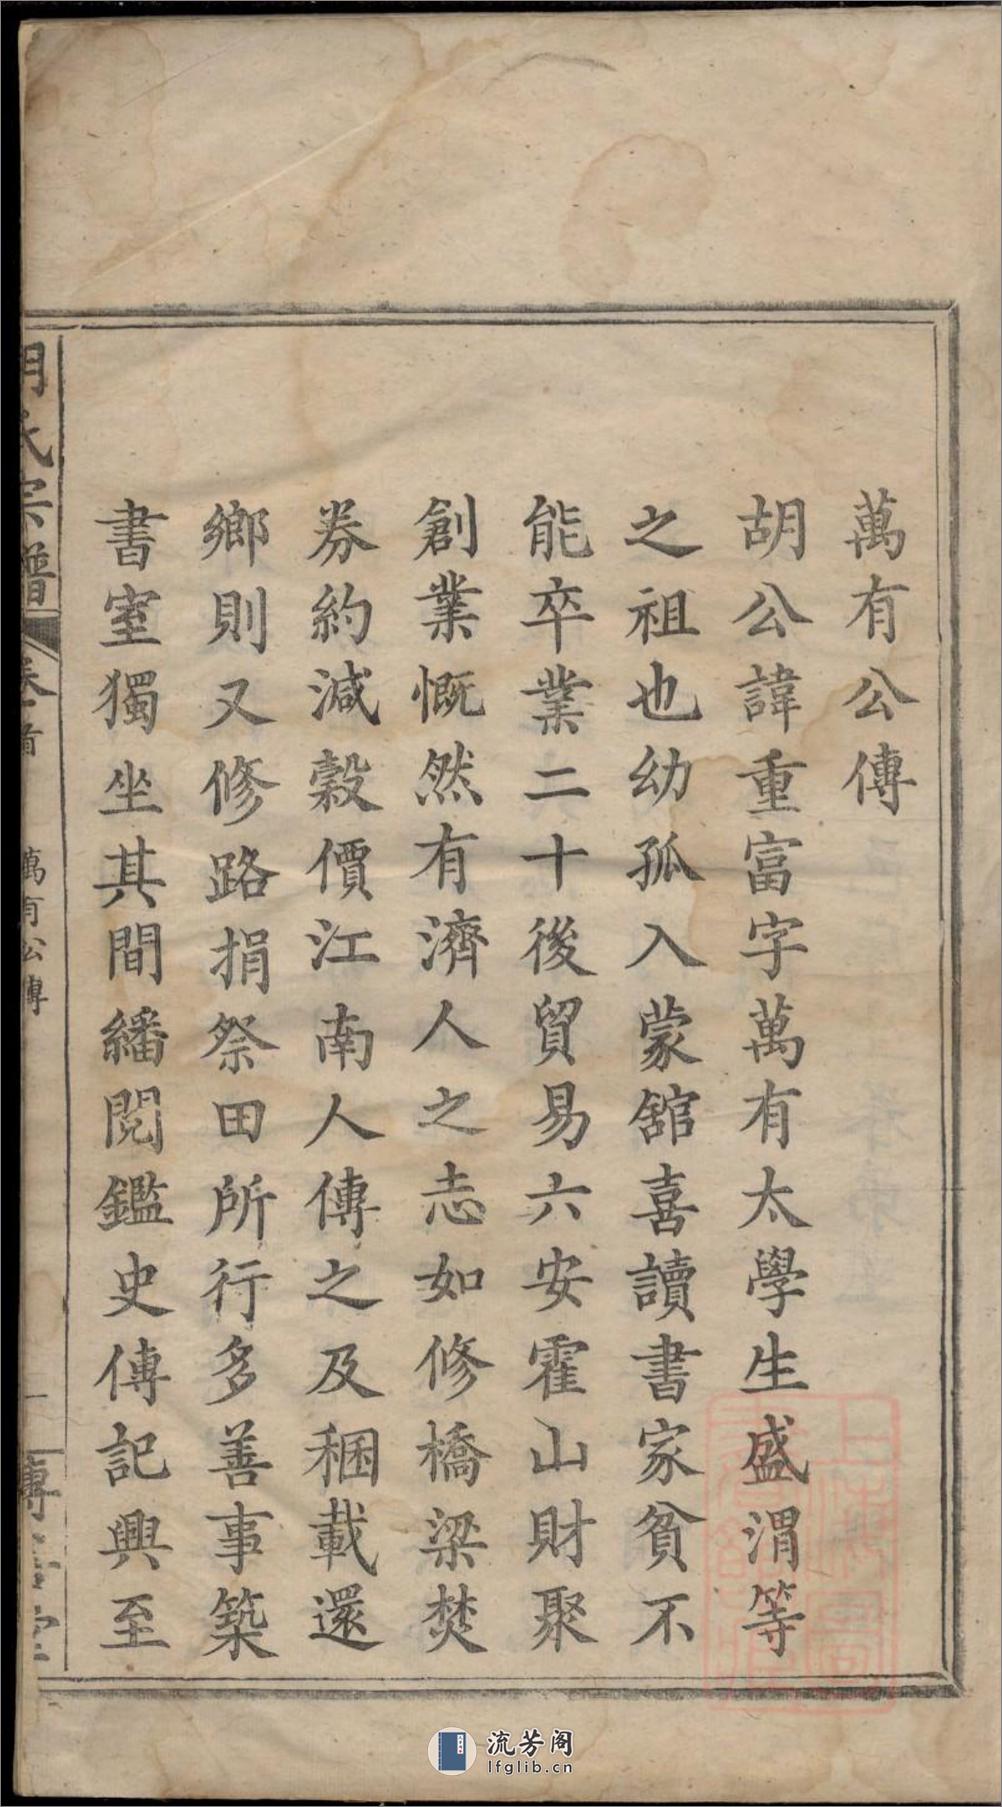 萬有公傳
胡公諱重富字萬有太學生盛渭等
之祖也幼孤入蒙舘喜讀書家貧不
能卒業二十後貿易六安霍山財聚
創業慨然有濟人之志如修橋梁焚
券約減穀價江南人傳之及稛載還
鄉則又修路捐祭田所行多善事築
書室獨坐其間繙閱鑑史傳記興至
胡氏宗譜
卷首
萬有公傳
一
流芳阁
lfglib.cn